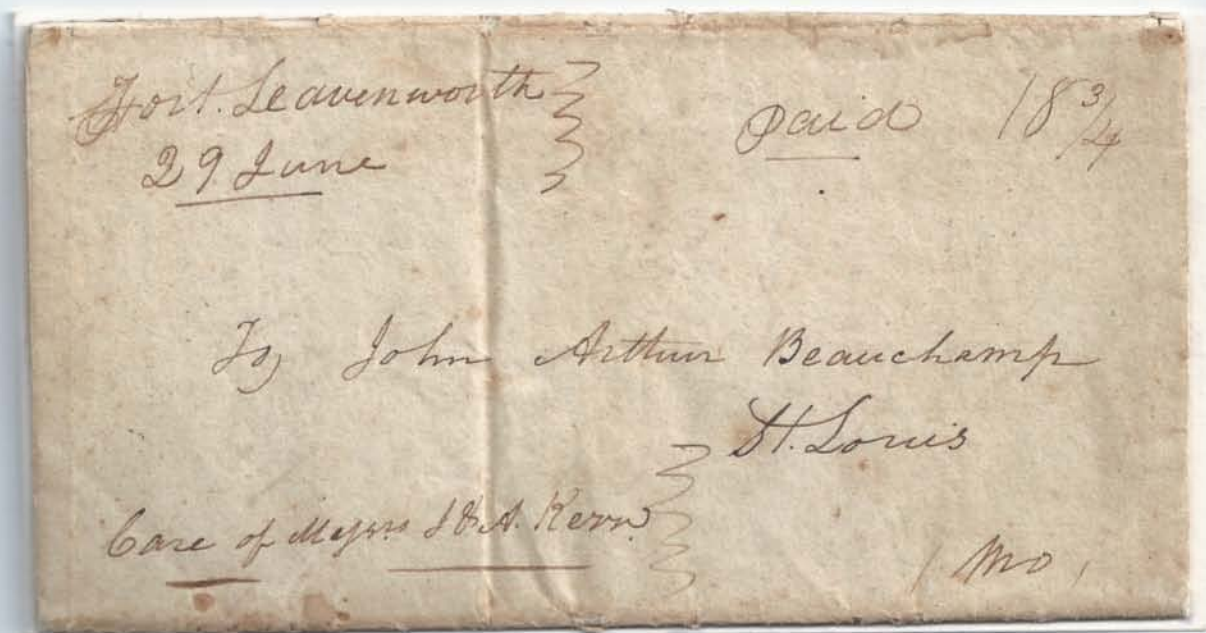 Fort. Leavenworth
29 June
Paid 18 3/4
To John Arthur Beauchamp
St. Louis
Care of Messrs J & A. Kerr.
Mo,